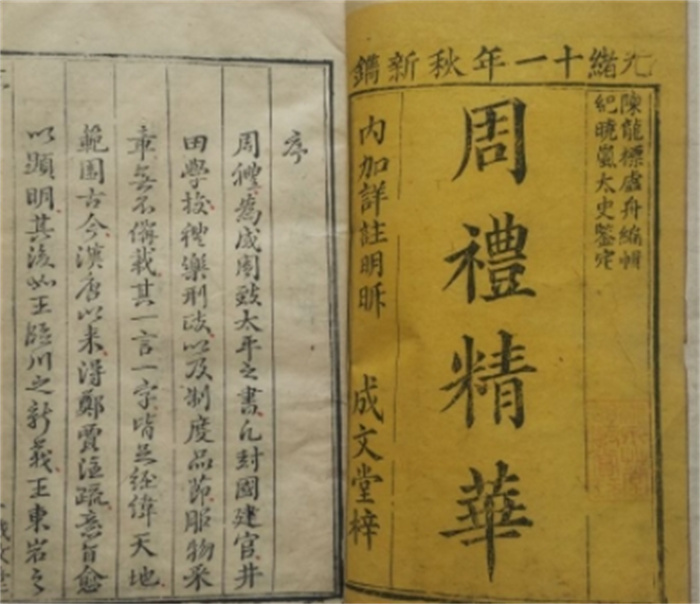 光緒十一年秋新鐫
陳龍標虛舟編輯
紀曉嵐太史鑒定
周禮精華
內加詳註明晰
成文堂梓
序
周禮為成周致太平之書凡封國建官井
田學校禮樂刑政以及制度品節服物采
章無不備載其一言一字皆足經緯天地
範圍古今漢唐以來得鄭賈注疏意旨愈
以顯明其後如王臨川之新義王東岩之